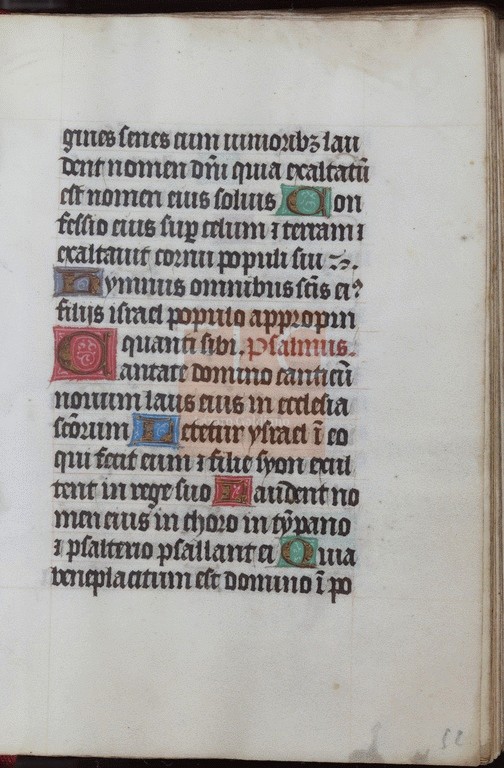 gines senes cum iunioribꝫ lau
dent nomen dñi quia exaltatū
est nomen eius solius Con
fessio eius suꝑ celum ⁊ terram ⁊
exaltauit cornu populi sui
Hymnus omnibus sc̄is eiꝰ
filijs israel populo appropin
quanti sibi. Psalmus.
Cantate domino canticū
nouum laus eius in ecclesia
sc̄orum Letetur ysrael ī eo
qui fecit eum ⁊ filie syon exul
tent in rege suo Laudent no
men eius in choro in tȳpano
⁊ psalterio psallant ei Quia
beneplacitum est domino ī po
52